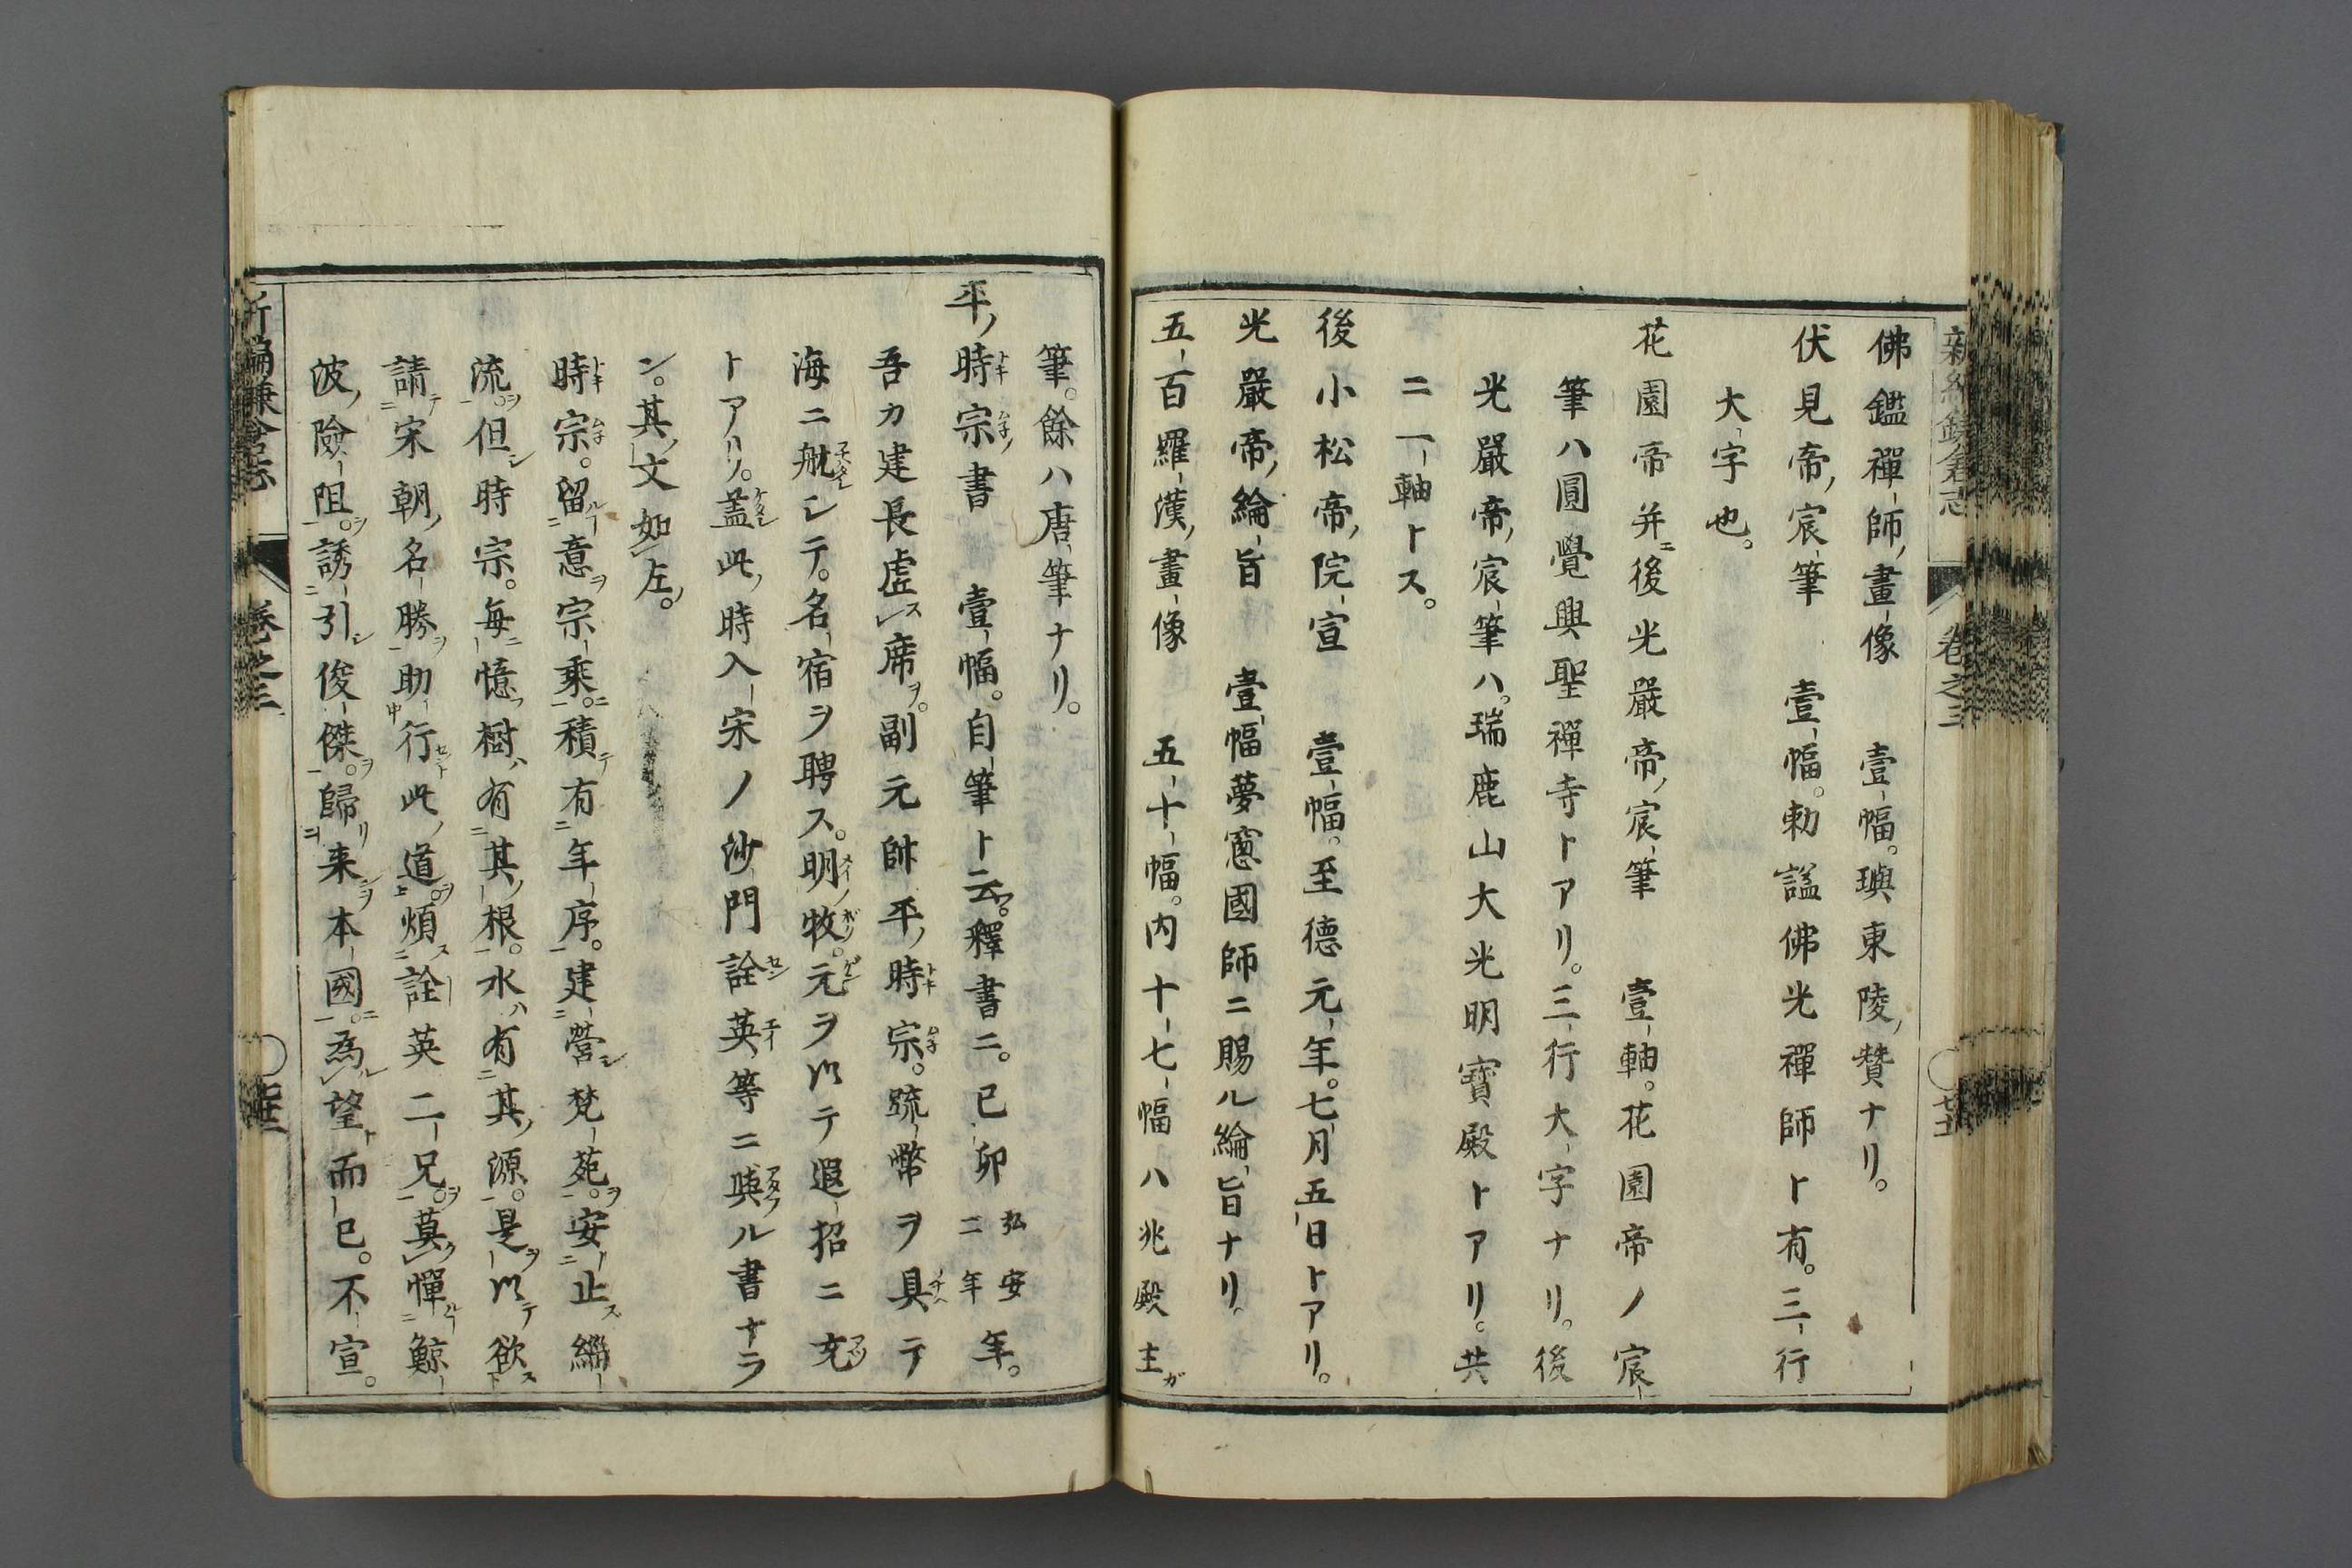 佛鑑禪師ノ畫像 壹幅。璵東陵ノ賛ナリ。
伏見帝ノ宸筆 壹幅。勅謚佛光禪師ト有。三行
大字也。
花園帝并ニ後光嚴帝ノ宸筆 壹軸。花園帝ノ宸
筆ハ圓覺興聖禪寺トアリ。三行大字ナリ。後
光嚴帝ノ宸筆ハ。瑞鹿山大光明寶殿トアリ。共
ニ一軸トス。
後小松帝ノ院宣 壹幅。至德元年。七月五日トアリ。
光嚴帝ノ綸旨 壹幅夢窻國師ニ賜ル綸旨ナリ。
五百羅漢ノ畫像 五十幅。内十七幅ハ兆殿主ガ
筆。餘ハ唐筆ナリ。
平ノ時宗ノ書 壹幅。自筆ト云フ。釋書ニ。己卯弘安二年年。
吾カ建長虚ス席ヲ。副元帥平ノ時宗。䟽幣ヲ具テ
海ニ航シテ。名宿ヲ聘ス。明ノ牧。元ヲ以テ遐招ニ充
トアリ。盖此ノ時入宋ノ沙門詮英等ニ與ル書ナラ
ン。其ノ文如左ノ。
時宗。留意ヲ宗乘ニ。積テ有年序。建營シ梵苑ヲ。安止ス緇
流ヲ。但シ時宗。毎ニ憶フ樹ハ有其ノ根。水ハ有其ノ源。是ヲ以テ欲ス
請テ宋朝ノ名勝ヲ助行セント此ノ道ヲ。煩ス詮英二兄ヲ。莫ク憚ル鯨
波ノ險阻ヲ。誘引シ俊傑ヲ。歸リ来シヲ本國ニ。為ル望ト而已。不宣。
新編鎌倉志 卷之三